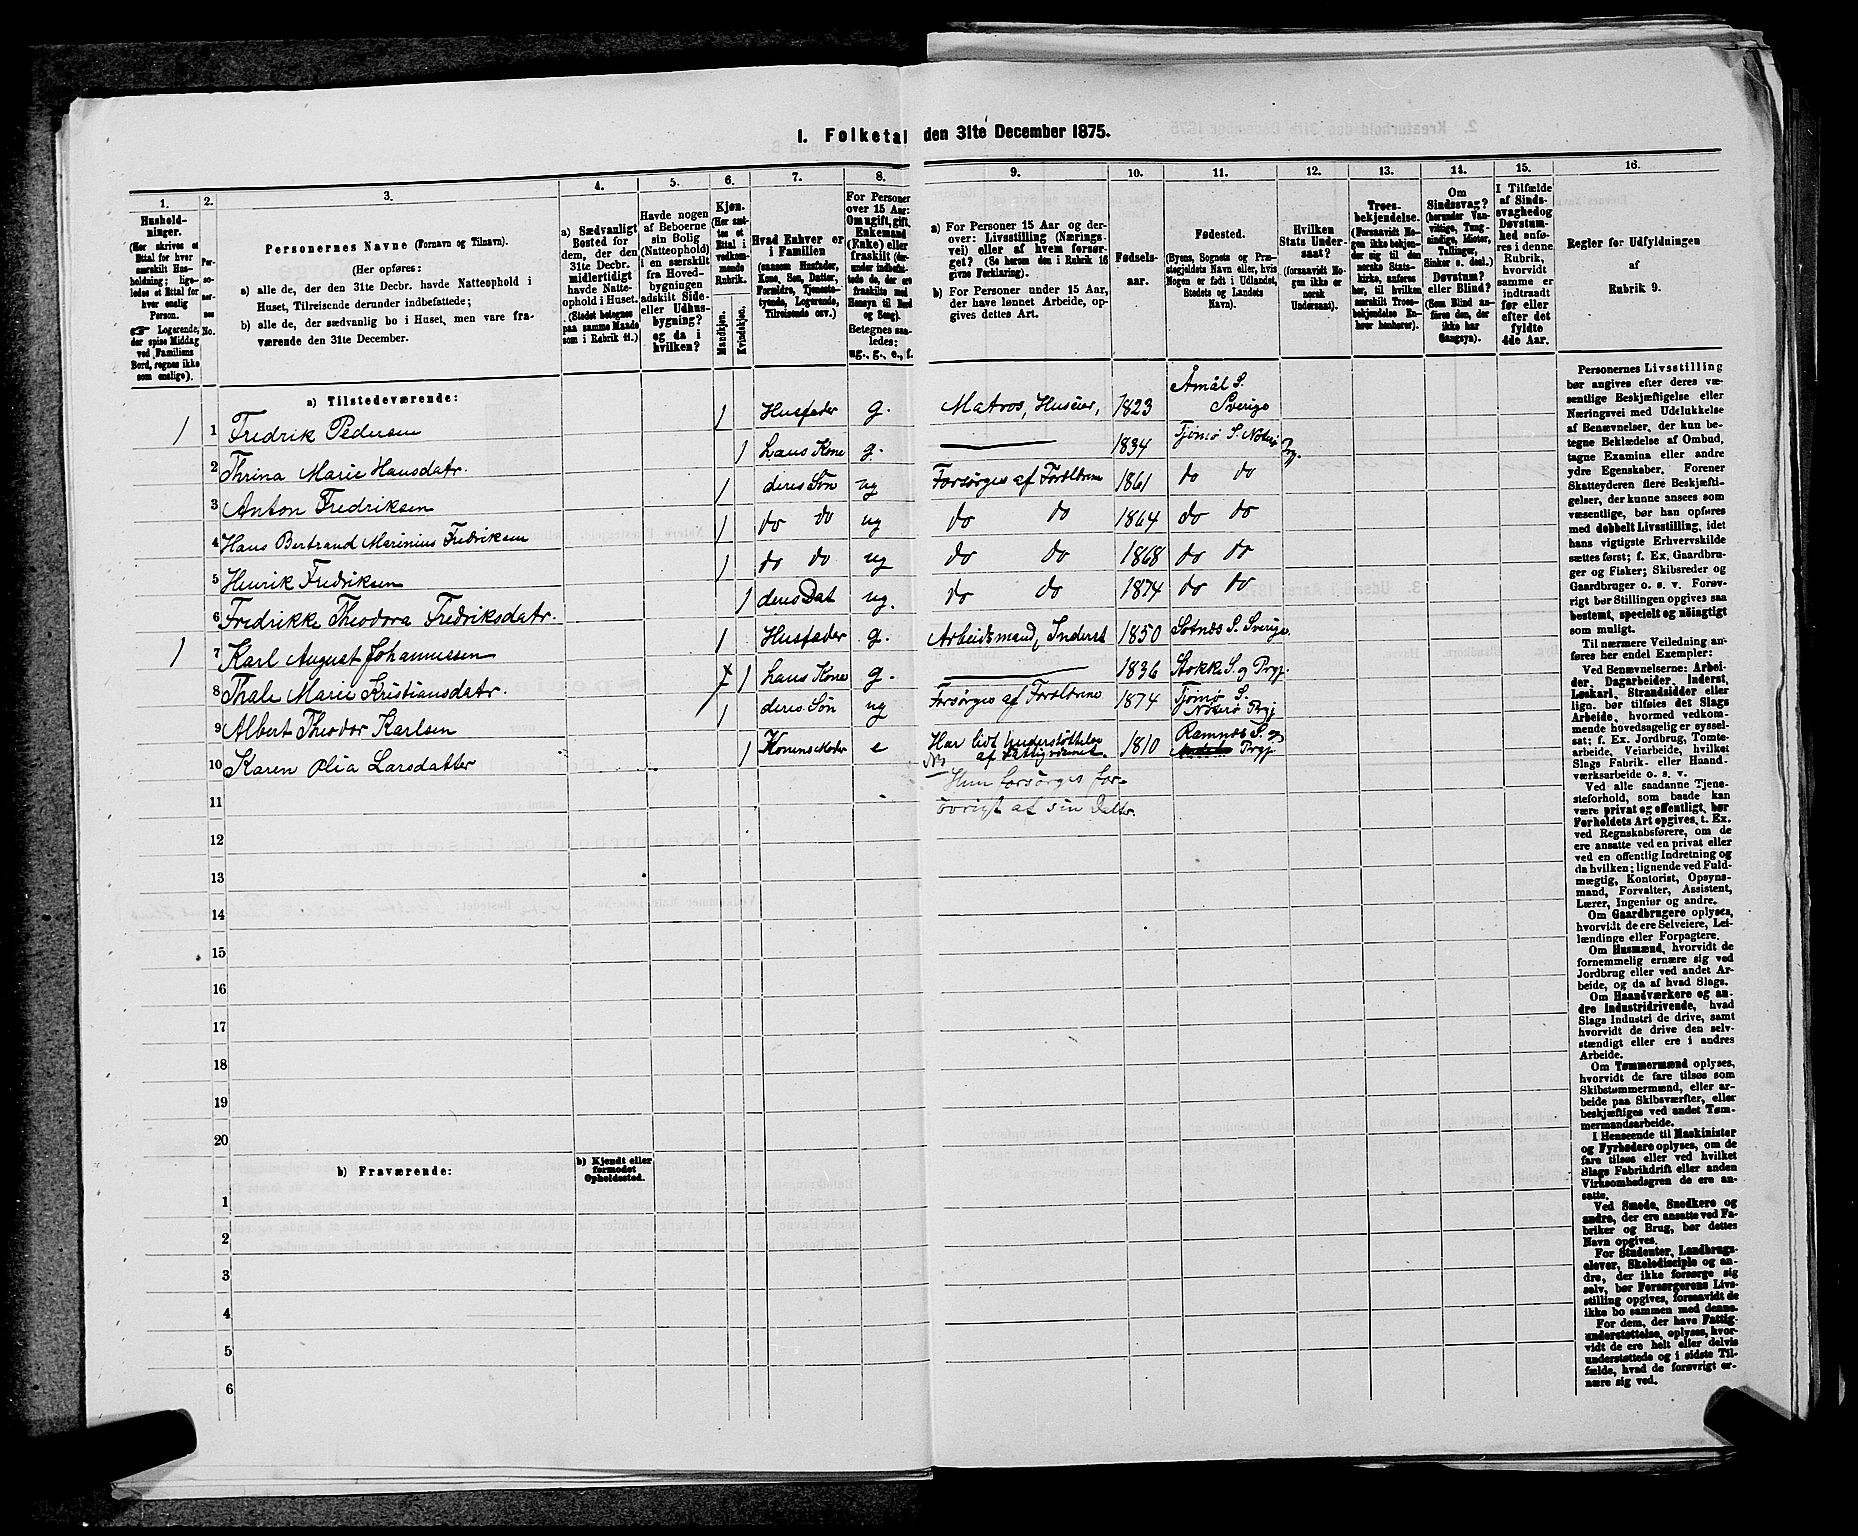 1. Folketal den 31te December 1875.
1.
2.
3.
4.
5.
6.
7.
8.
9.
10.
11.
12.
13.
14.
15.
16.
Hushold-
ninger.
(Her skrives et
Ettal for hver
særskilt Hus-
holdning; lige-
ledes et Ettal for
hver enslig
Person.
☞ Logerende,
der spise Middag
ved Familiens
Bord, regnes ikke
som enslige).
Per-
so-
ner-
nes
No.
Personernes Navne (Fornavn og Tilnavn).
(Her opføres:
a) alle de, der den 31te Decbr. havde Natteophold i
Huset, Tilreisende derunder indbefattede;
b) alle de, der sædvanlig bo i Huset, men vare fra-
værende den 31te December.
a) Sædvanligt
Bosted for
dem, der den
31te Decbr.
midlertidigt
havde Natte-
ophold i Huset.
(Stedet betegnes
paa samme Maade
som i Rubrik 11.)
Havde nogen
af Beboerne
sin Bolig
(Natteophold)
i en særskilt
fra Hoved-
bygningen
adskilt Side-
eller Udhus-
bygning?
og da i
hvilken?
Kjøn.
(Her sæt-
tes et
Ettal i
vedkom-
mende
Rubrik.
Mandkjøn.
Kvindekjøn.
Hvad Enhver er
i Familien
(saasom Husfader,
Kone, Søn, Datter,
Forældre, Tjeneste-
tyende, Logerende,
Tilreisende osv.)
For Personer
over 15 Aar:
Om ugift, gift,
Enkemand
(Enke) eller
fraskilt (der-
under indbefat-
tede de, der ere
fraskilte med
Hensyn til Bord
og Seng).
Betegnes saa-
ledes:
ug., g., e., f.
a) For Personer 15 Aar og der-
over: Livsstilling (Nærings-
vei) eller af hvem forsør-
get? (Se herom den i Rubrik 16
givne Forklaring).
b) For Personer under 15 Aar,
der have lønnet Arbeide, op-
gives dettes Art.
Fødsels-
aar.
Fødested.
(Byens, Sognets og Præ-
stegjeldets Navn eller, hvis
Nogen er født i Udlandet,
Stedets og Landets
Navn).
Hvilken
Stats Under-
saat?
(forsaavidt No-
gen ikke er
norsk
Undersaat).
Troes-
bekjendelse.
(Forsaavidt No-
gen ikke bekjen-
der sig til den
norske Stats-
kirke, anføres
her, til hvilken
særskilt Troes-
bekjendelse En-
hver henhører).
Om
Sindssvag?
(herunder Van-
vittige, Tung-
sindige, Idioter,
Tullinger,
Sinker o. desl.)
Døvstum?
eller Blind?
(Som Blind an-
føres den, der
ikke har
Gangsyn).
I Tilfælde
af Sinds-
svaghed og
Døvstum-
hed anfø-
res i denne
Rubrik,
hvorvidt
samme er
indtraadt
før eller
efter det
fyldte
4de Aar.
Regler for Udfyldningen
af
Rubrik 9.
a) Tilstedeværende:
1 1 Fredrik Pedersen 1 Husfader g. Matros, Huseier, 1823 Åmål S. Sverige
2 Thrina Marie Hansdatr. 1 hans Kone g. 1834 Tjømø S. Nøterø Prg.
3 Anton Fredriksen 1 deres Søn ug Forsørges af Forældrene 1861 do do
4 Hans Bertrand Marinius Fredriksen 1 do do ug do do 1864 do do
5 Henrik Fredriksen 1 do do ug do do 1868 do do
6 Fredrikke Theodora Fredriksdatr. 1 deres Dat ug. do do 1874 do do
1 7 Karl August Johannessen 1 Husfader g. Arbeidsmand, Inderst 1850 Sotnæs S. Sverige.
8 Thale Marie Kristiansdatr. 1 hans Kone g. 1836 Stokke S. og Prgj.
9 Albert Theodor Karlsen 1 deres Søn ug Forsørges af Forældrene 1874 Tjømø S. Nøterø Prgj
10 Karen Olia Larsdatter 1 Konens Moder e Har lidt Understøttelse af Fattigvæsenet 1810 Ramnæs S. og Prgj.
Hun forsørges for-
øvrigt af sin Datter.
11
12
13
14
15
16
17
18
19
20
b) Fraværende:
b) Kjendt eller
formodet
Opholdssted.
1
2
3
4
5
6
Personernes Livsstilling
bør angives efter deres væ-
sentlige Beskjæftigelse eller
Næringsvei med Udelukkelse
af Benævnelser, der kun be-
tegne Beklædelse af Ombud,
tagne Examina eller andre
ydre Egenskaber. Forener
Skatteyderen flere Beskjæfti-
gelser, der kunne ansees som
væsentlige, bør han opføres
med dobbelt Livsstilling, idet
hans vigtigste Erhvervskilde
sættes først; f. Ex. Gaardbru-
ger og Fisker; Skibsreder og
Gaardbruger o. s. v. Forøv-
rigt bør Stillingen opgives saa
bestemt, specielt og nøiagtigt
som muligt.
Til nærmere Veiledning an-
føres her endel Exempler:
Ved Benævnelserne: Arbei-
der, Dagarbeider, Inderst,
Løskarl, Strandsidder eller
lign. bør tilføies det Slags
Arbeide, hvormed vedkom-
mende hovedsagelig er syssel-
sat; f. Ex. Jordbrug, Tomte-
arbeide, Veiarbeide, hvilket
Slags Fabrik- eller Haand-
værksarbeide o. s. v.
Ved alle saadanne Tjene-
steforhold, som baade kan
være privat og offentligt, bør
Forholdets Art opgives, t. Ex.
ved Regnskabsførere, om de
ere ansatte ved en privat eller
ved en offentlig Indretning og
da hvilken; lignende ved Fuld-
mægtig, Kontorist, Opsyns-
mand, Forvalter, Assistent,
Lærer, Ingeniør og andre.
Om Gaardbrugere oplyses,
hvorvidt de ere Selveiere, Lei-
lændinge eller Forpagtere.
Om Husmænd, hvorvidt de
fornemmelig ernære sig ved
Jordbrug eller ved andet Ar-
beide, og da af hvad Slags.
Om Haandværkere og an-
dre Industridrivende, hvad
Slags Industri de drive, samt
hvorvidt de drive den selv-
stændigt eller ere i andres
Arbeide.
Om Tømmermænd oplyses,
hvorvidt de fare tilsøs som
Skibstømmermænd, eller ar-
beide paa Skibsværfter, eller
beskjæftiges ved andet Tøm-
mermandsarbeide.
I Henseende til Maskinister
og Fyrbødere oplyses, om de
fare tilsøs eller ved hvilket
Slags Fabrikdrift eller anden
Virksomhedsgren de ere an-
satte.
Ved Smede, Snedkere og
andre, der ere ansatte ved Fa-
briker og Brug, bør dettes
Navn opgives.
For Studenter, Landbrugs-
elever, Skoledisciple og an-
dre, der ikke forsørge sig
selv, bør Forsørgerens Livs-
stilling opgives, forsaavidt de
ikke bo sammen med denne.
For dem, der have Fattig-
understøttelse, oplyses, hvor-
vidt de ere helt eller delvis
understøttede og i sidste Til-
fælde, hvad de forøvrigt er-
nære sig ved.